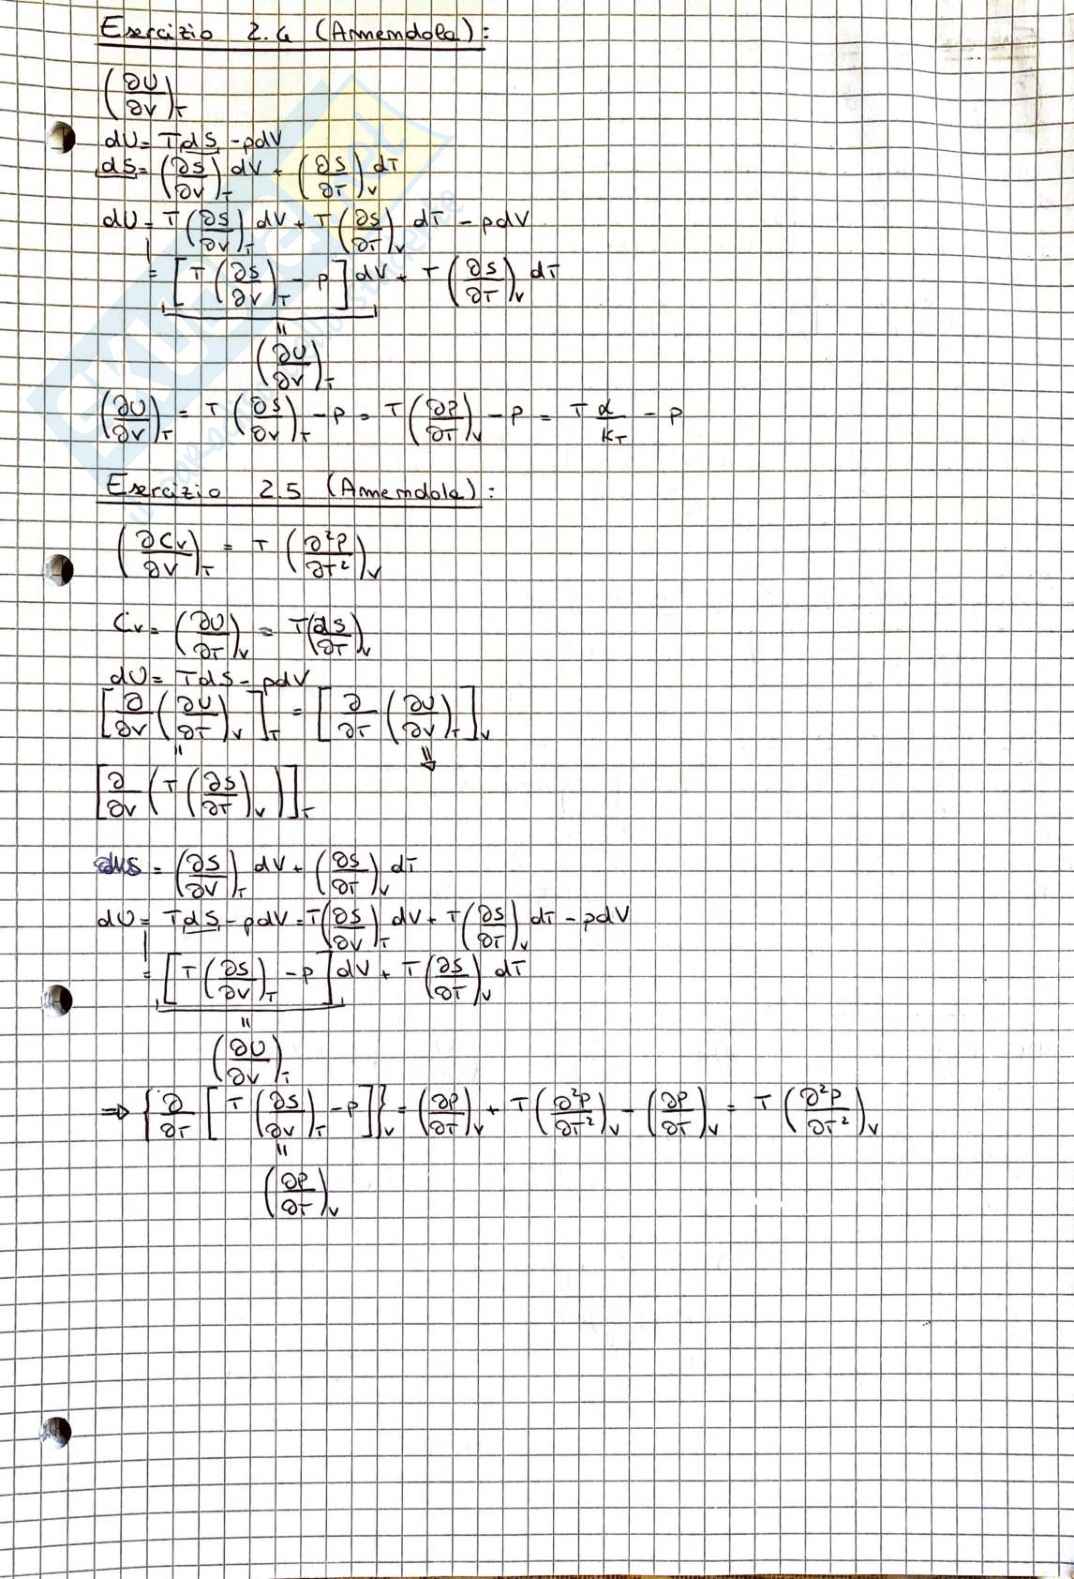 Esercizio 2.4 (Amendola):
(∂U/∂V)_T
dU = TdS - pdV
dS = (∂S/∂V)_T dV + (∂S/∂T)_V dT
dU = T(∂S/∂V)_T dV + T(∂S/∂T)_V dT - pdV
= [T(∂S/∂V)_T - p]dV + T(∂S/∂T)_V dT
=
(∂U/∂V)_T
(∂U/∂V)_T = T(∂S/∂V)_T - p = T(∂p/∂T)_V - p = T α/K_T - p
Esercizio 2.5 (Amendola):
(∂C_V/∂V)_T = T(∂²p/∂T²)_V
C_V = (∂U/∂T)_V = T(∂S/∂T)_V
dU = TdS - pdV
[∂/∂V(∂U/∂T)_V]_T = [∂/∂T(∂U/∂V)_T]_V
= ⇓
[∂/∂V(T(∂S/∂T)_V)]_T
dS = (∂S/∂V)_T dV + (∂S/∂T)_V dT
dU = TdS - pdV = T(∂S/∂V)_T dV + T(∂S/∂T)_V dT - pdV
= [T(∂S/∂V)_T - p]dV + T(∂S/∂T)_V dT
=
(∂U/∂V)_T
⇒ {∂/∂T[T(∂S/∂V)_T - p]}_V = (∂p/∂T)_V + T(∂²p/∂T²)_V - (∂p/∂T)_V = T(∂²p/∂T²)_V
=
(∂p/∂T)_V